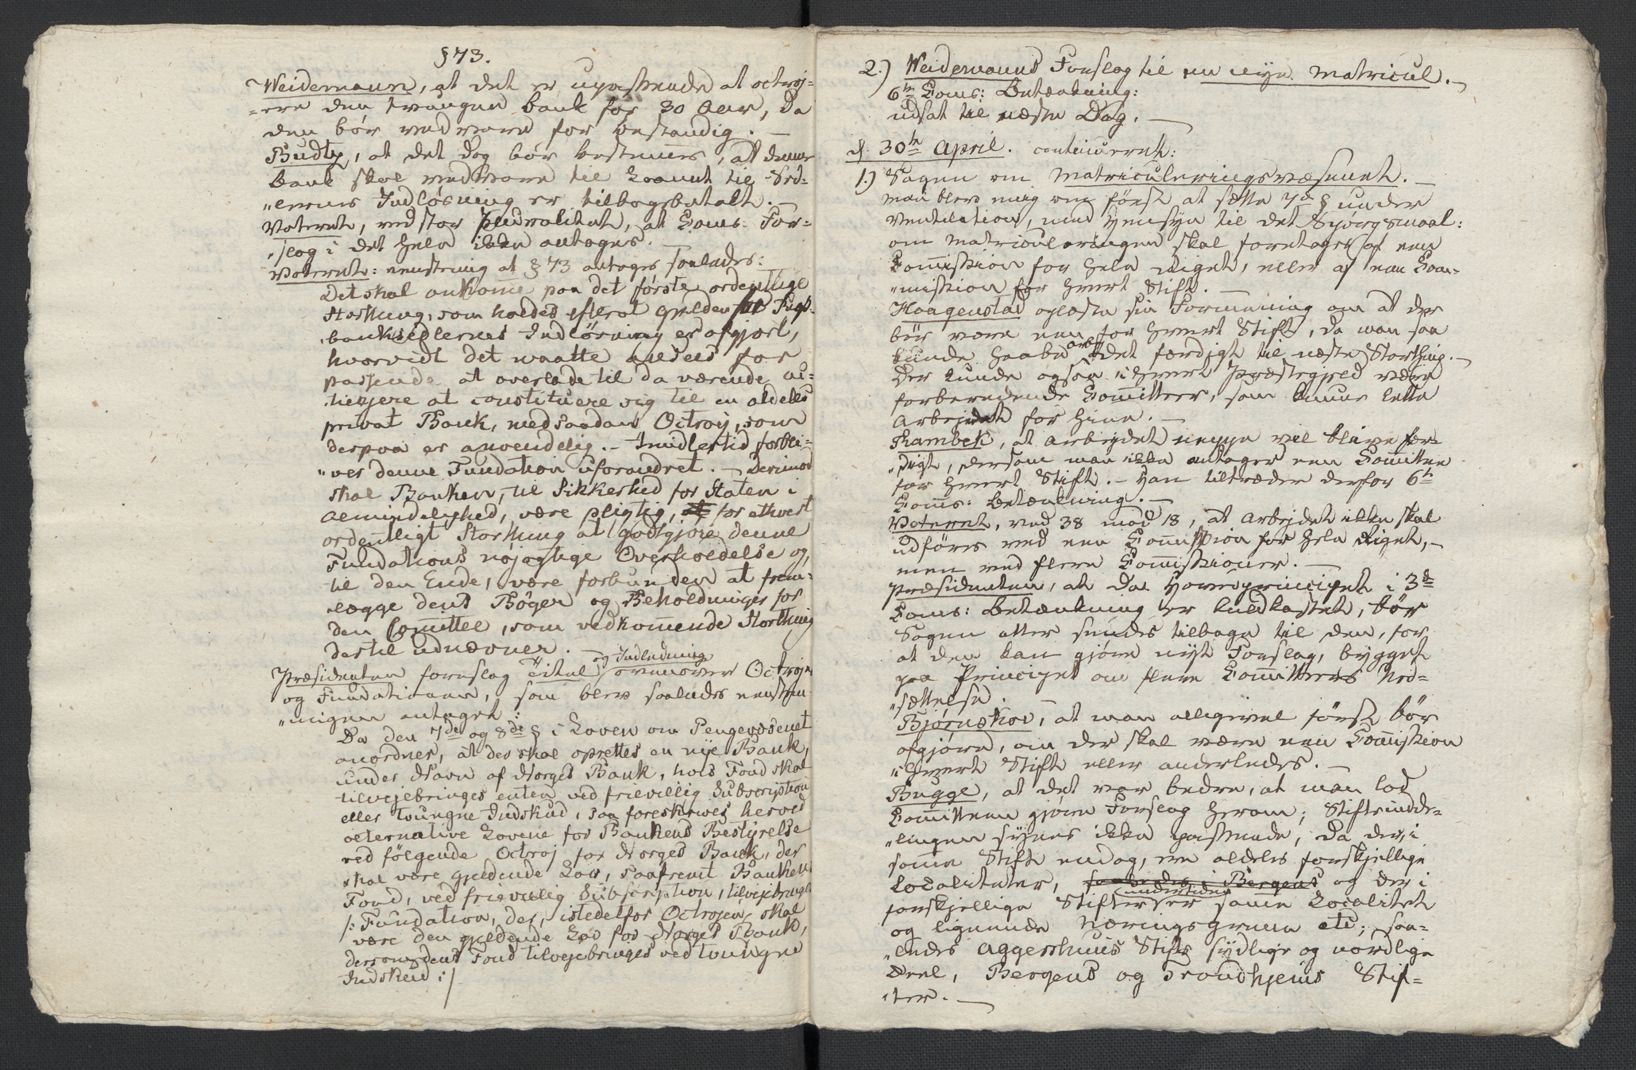 § 73.
Weidemann, at det er upassende at octroj-
-ere den tvungne Bank for 30 Aar, da
den bör vedvare for bestandig. —
Budtz, at det dog bör bestemmes, at denne
Bank skal vedvare til Laanet til Sed-
„lernes Indlösning er tilbagebetalt. —
Voteret, ved stor Pluralitet, at Coms. For-
„slag i det hele ikke antages. —
Voteret: eenstemmig at § 73 antages saaledes:
Det skal ankome paa det förste ordentlige
Storthing, som holdes efterat Gjelden for Rigs-
bankssedlernes Indlösning er afgjort,
hvorvidt det maatte ansees for
passende at overlade til da værende Au-
-tieejere at constituere sig til en aldeles
privat Bank, med saadan Octroj, som
derpaa er anvendelig. — Imidlertid forbli-
„ver denne Fundation uforandret. — Derimod
skal Banken, til Sikkerhed for Staten i
Almindelighed, være pligtig, for ethvert
ordentligt Storthing at godtgjöre denne
Fundations nöjagtige Overholdelse og,
til den Ende, være forbunden at frem-
-lægge dens Böger og Beholdninger for
den Comittee, som vedkomende Storthing
dertil udnævner. —
og Indledning
Præsidenten foreslog Titel ovenover Octrojen
og Fundationen, som blev saaledes eenstem-
„migen antaget:
Da den 7de og 8de § i Loven om Pengevæsenet
anordner, at der skal oprettes en nye Bank,
under Navn af Norges Bank, hvis Fond skal
tilvejebringes enten ved frievillig Subscription
eller tvungne Indskud, saa foreskrives herved
alternative Lovene for Bankens Bestyrelse
ved fölgende Octroj for Norges Bank, der
skal være gjeldende Lov, saafremt Bankens
Fond, ved frievillig Subscription, tilvejebringes
/: Fundation, der, istedetfor Octrojen, skal
være den gjeldende Lov for Norges Bank,
dersom dens Fond tilvejebringes ved tvungne
Indskud :/
2.) Weidemanns Forslag til en nye Matricul. —
6te Coms: Betænkning:
udsat til næste Dag. —
d. 30te April. continueret:
1.) Sagen om Matriculeringsvæsenet. —
man blev enig om först at sætte 7de § under
Ventilation, med Hensyn til det Spörgsmaal:
om Matriculeringen skal foretages af een
Comission for hele Riget, eller af een Com-
„mission for hvert Stift. —
Haagenstad oplæste sin Formening om at der
bör være een for hvert Stift, da man saa
kunde haabe Arb. det færdigt til næste Storthing. —
Der kunde ogsaa i hvert Præstegjeld være
forberedende Comitteer, som kunne lette
Arbejdet for hine. —
Rambek, at Arbejdet neppe vil blive fær-
„digt, dersom man ikke antager een Comittee
for hvert Stift. — Han tiltræder derfor 6te
Coms: Betænkning. —
Voteret, med 38 mod 18, at Arbejdet ikke skal
udföres ved een Comission for hele Riget, —
men ved flere Comissioner. —
Præsidenten, at da Hovedprincipet i 3de
Coms: Betænkning er kuldkastet, bör
Sagen atter sendes tilbage til den, for
at den kan gjöre nyt Forslag, bygget
paa Principet om flere Comitteers Ned-
„sættelse.
Björnskov, at man alligevel först bör
afgjöre, om der skal være een Comission
i hvert Stift eller anderledes. —
Bugge, at det var bedre, at man lod
Comitteen gjöre Forslag herom; Stiftsindde-
„lingen synes ikke passende, da der, i
samme Stift endog, ere aldeles forskjellige
Localiteter, Bergens og der i
forskjellige Stifter undertiden er samme Localitet
og lignende Nærings Grene etc; saa-
„ledes Aggershuus Stifts sydlige og nordlige
Deel, Bergens og Trondhjems Stif-
-ter. —